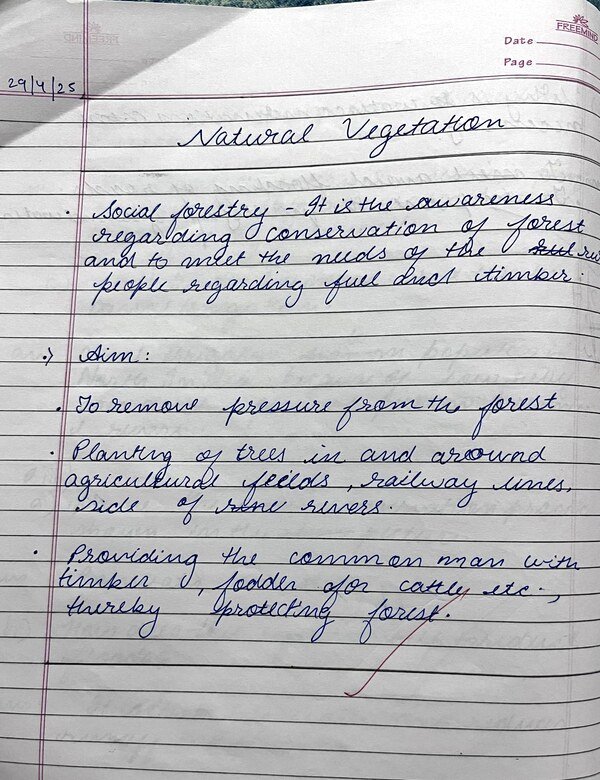 FREEMIND
Date
Page
29/4/25
Natural Vegetation
• Social forestry - It is the awareness
regarding conservation of forest
and to meet the needs of the
people regarding fuel and timber.
•) Aim:
• To remove pressure from the forest
• Planting of trees in and around
agricultural feilds, railway lines,
side of rivers.
• Providing the common man with
timber, fodder for cattle etc.,
thereby protecting forest.